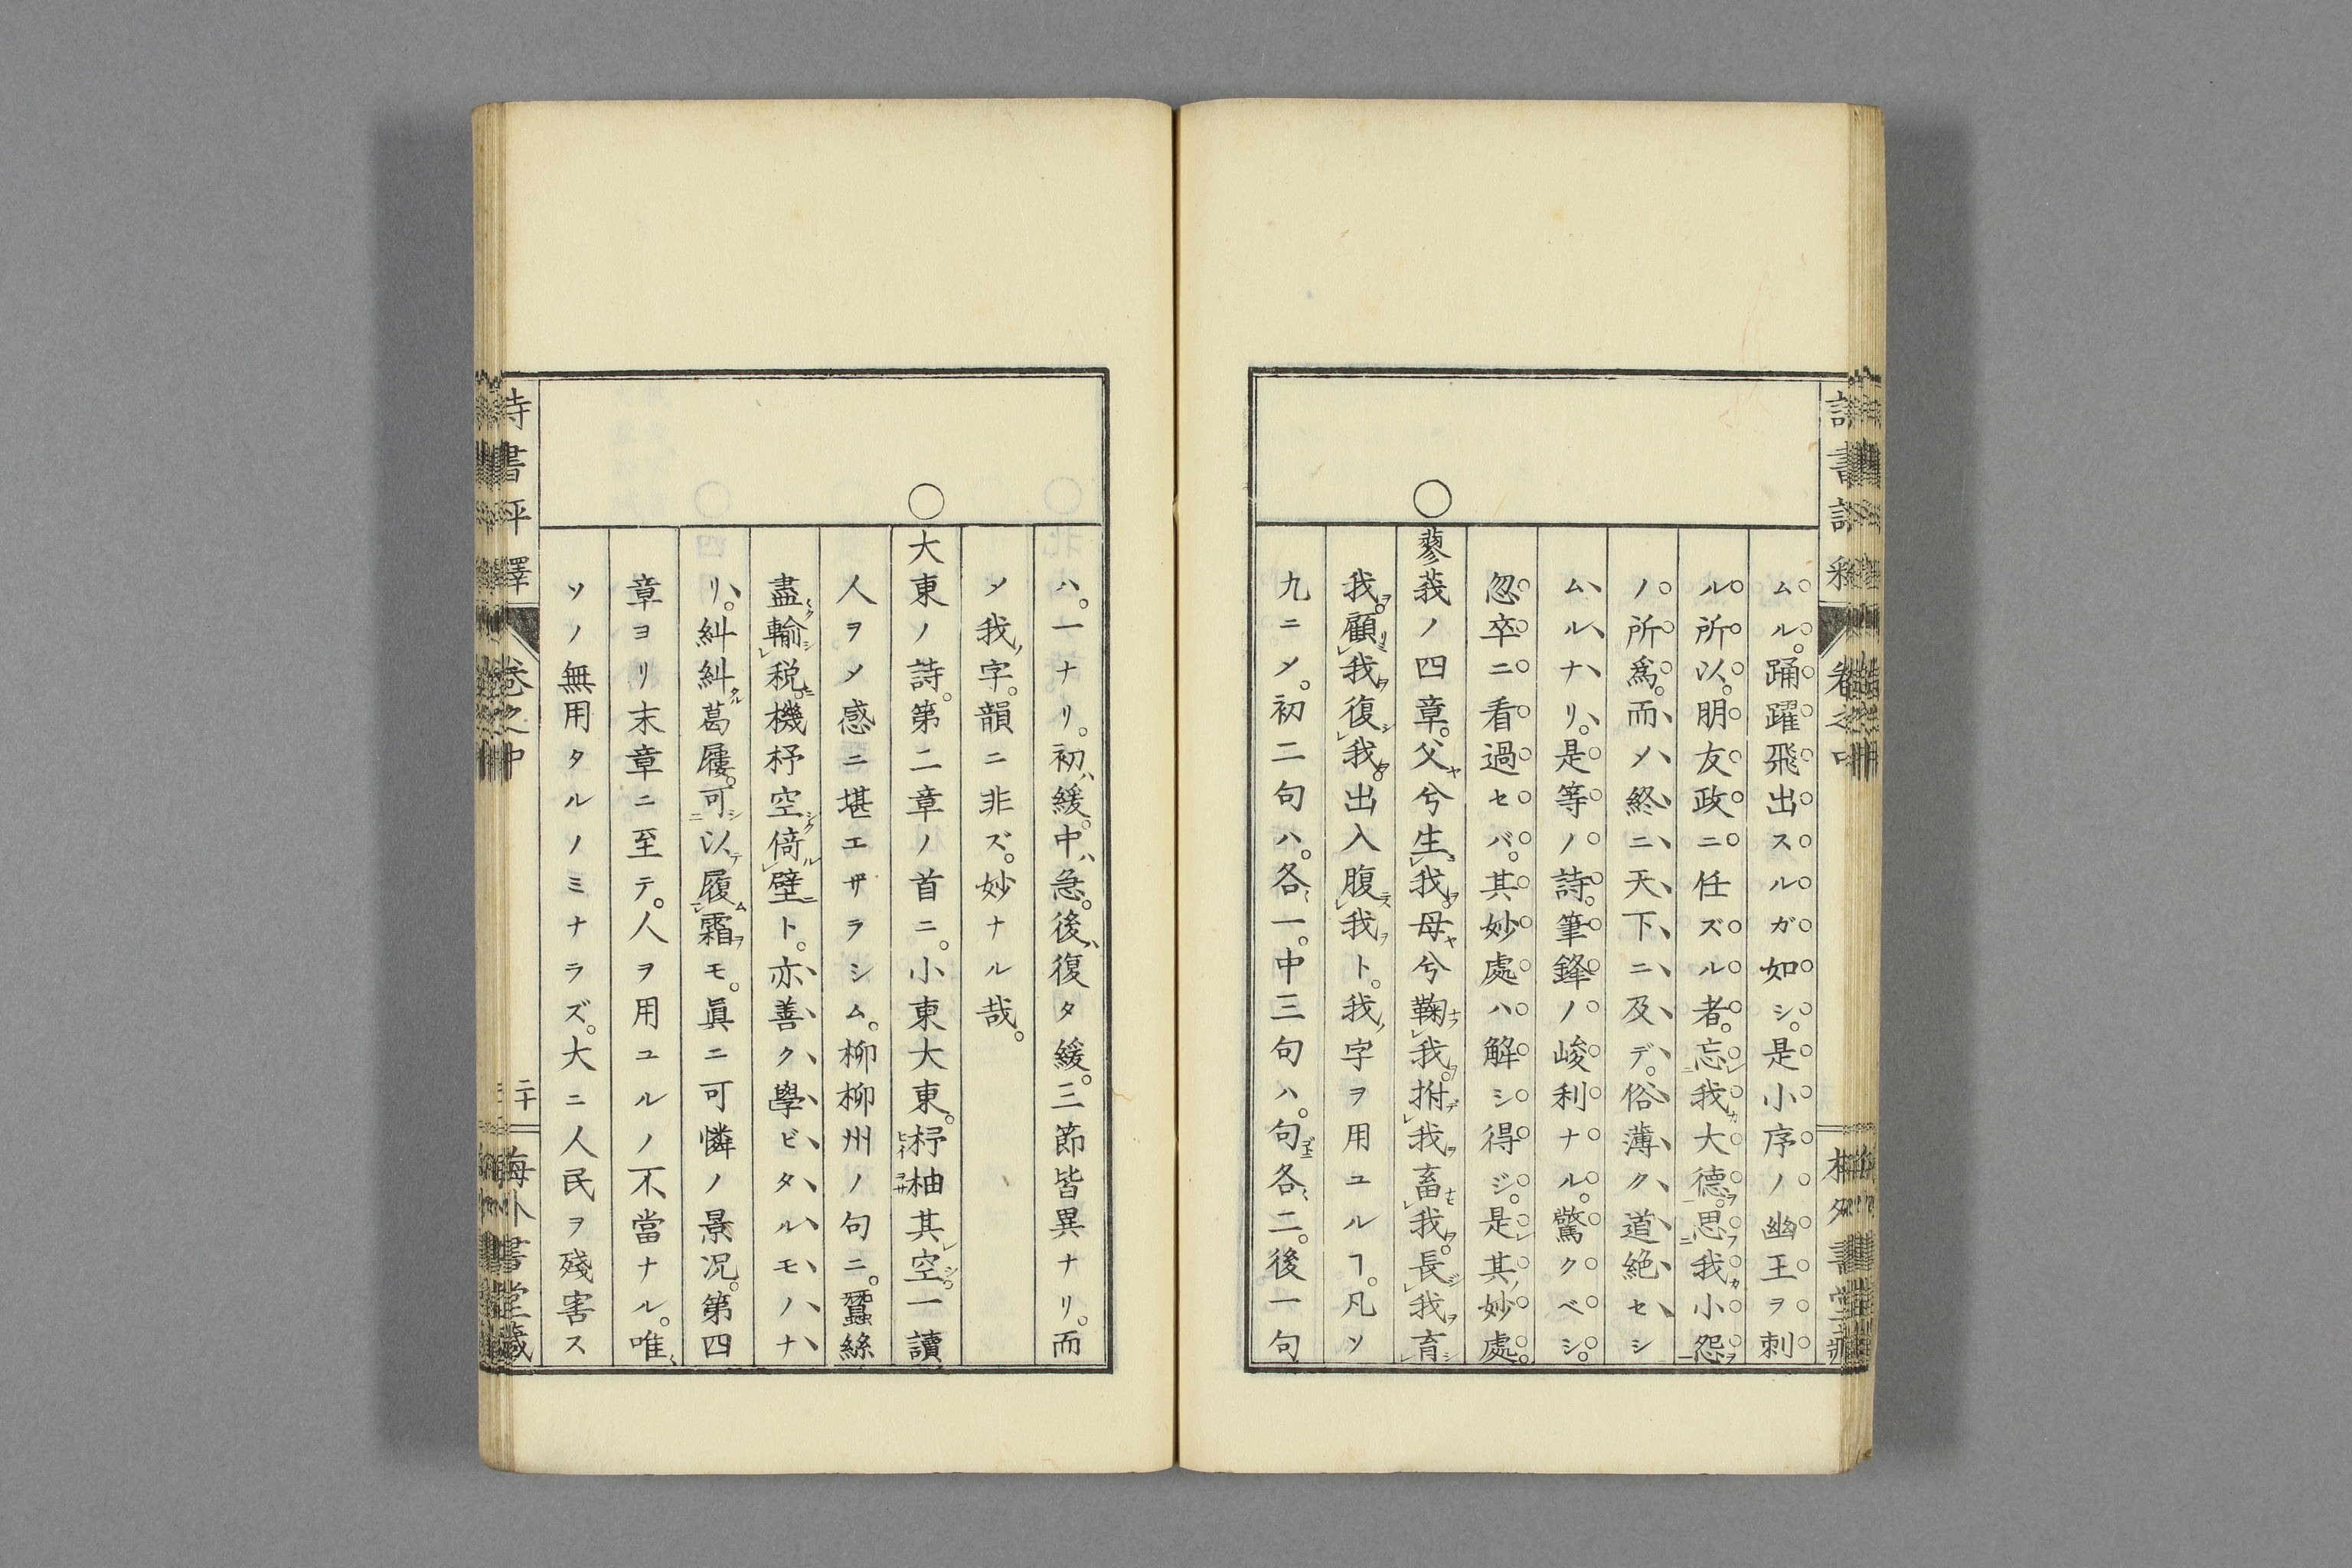 ムル。踊躍飛出スルガ如シ。是小序ノ幽王ヲ刺
ル所以。朋友政ニ任ズル者。忘我大德。思我小怨
ノ所爲。而〆終ニ天下ニ及デ。俗薄ク道絶セシ
ムルナリ。是等ノ詩。筆鋒ノ峻利ナル。驚クベシ。
忽卒ニ看過セバ。其妙處ハ解シ得ジ。是其妙處。
○蓼莪ノ四章。父兮生我。母兮鞠我。拊我畜我。長我育
我。顧我復我。出入腹我ト。我字ヲ用ユルヿ。凡ソ
九ニ〆。初二句ハ。各一。中三句ハ。句各二。後一句
ハ。一ナリ。初緩。中急。後復タ緩。三節皆異ナリ。而
〆我字。韻ニ非ズ。妙ナル哉。
○大東ノ詩。第二章ノ首ニ。小東大東。杼柚其空。一讀
人ヲ〆感ニ堪エザラシム。柳柳州ノ句ニ。蠶絲
盡輸税。機杼空倚壁ト。亦善ク學ビタルモノナ
リ。糾糾葛屨。可以履霜モ。眞ニ可憐ノ景況。第四
章ヨリ末章ニ至テ。人ヲ用ユルノ不當ナル。唯
ソノ無用タルノミナラズ。大ニ人民ヲ殘害ス
詩書評釋
卷之中
二十
海外書堂藏